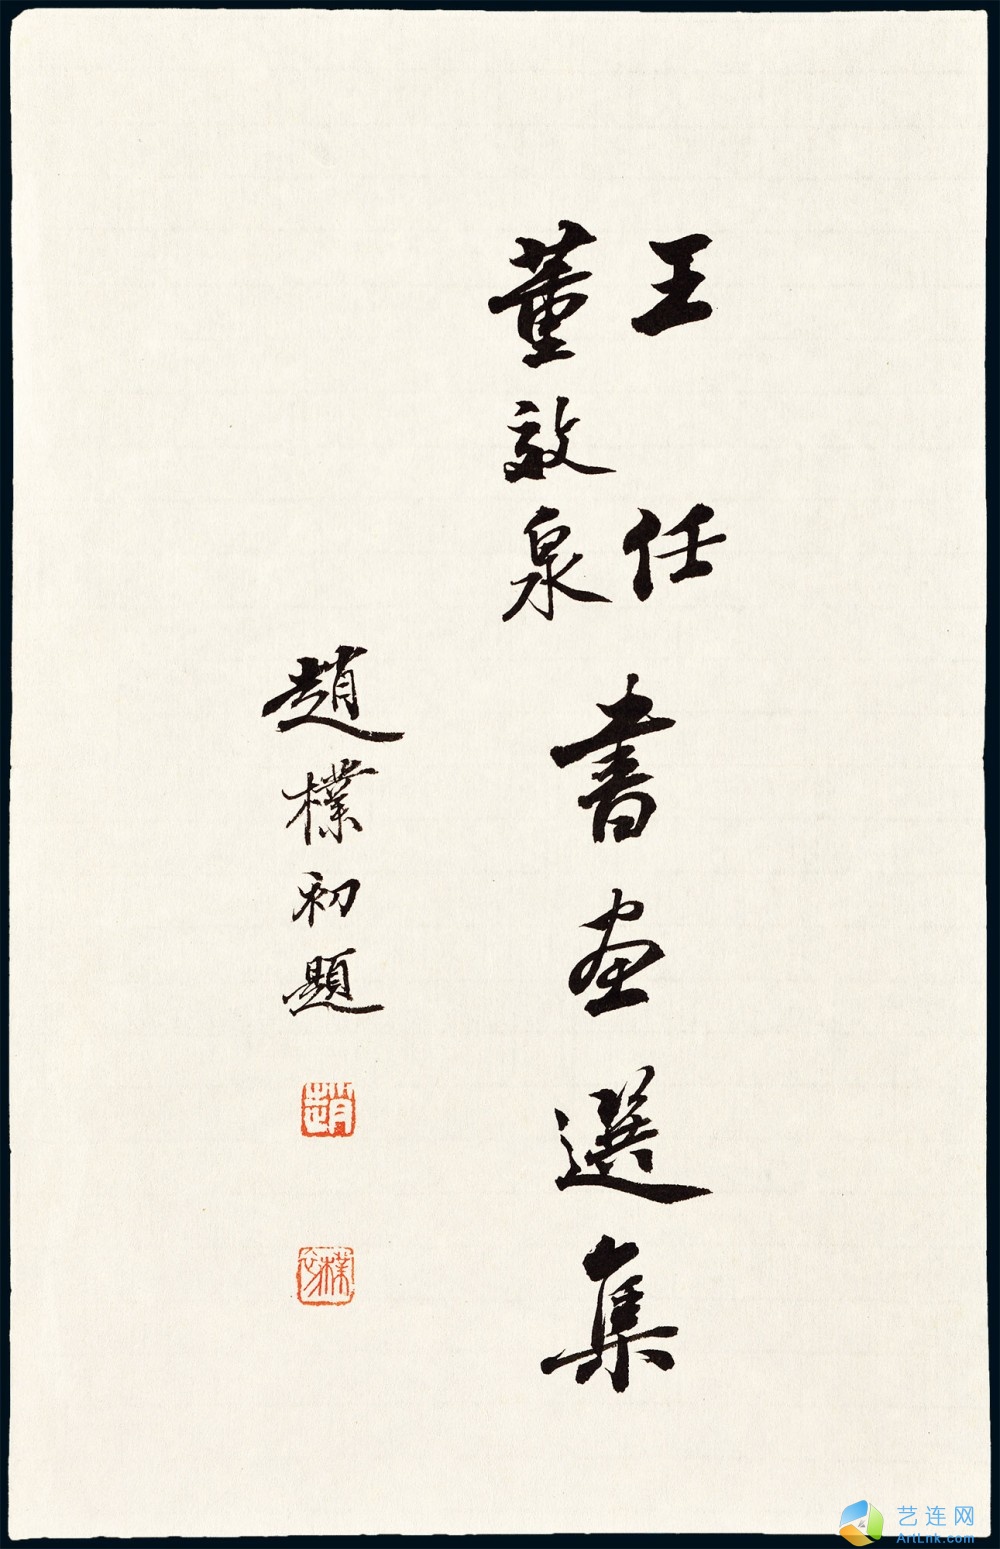 王任
董敦泉
書画選集
趙樸初題
趙
樸初
艺连网
ArtLnk.com